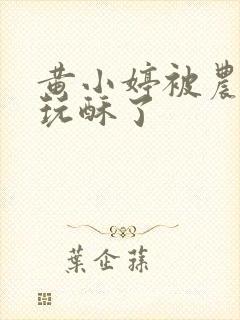 黄小婷被農
玩酥了
葉企蓀